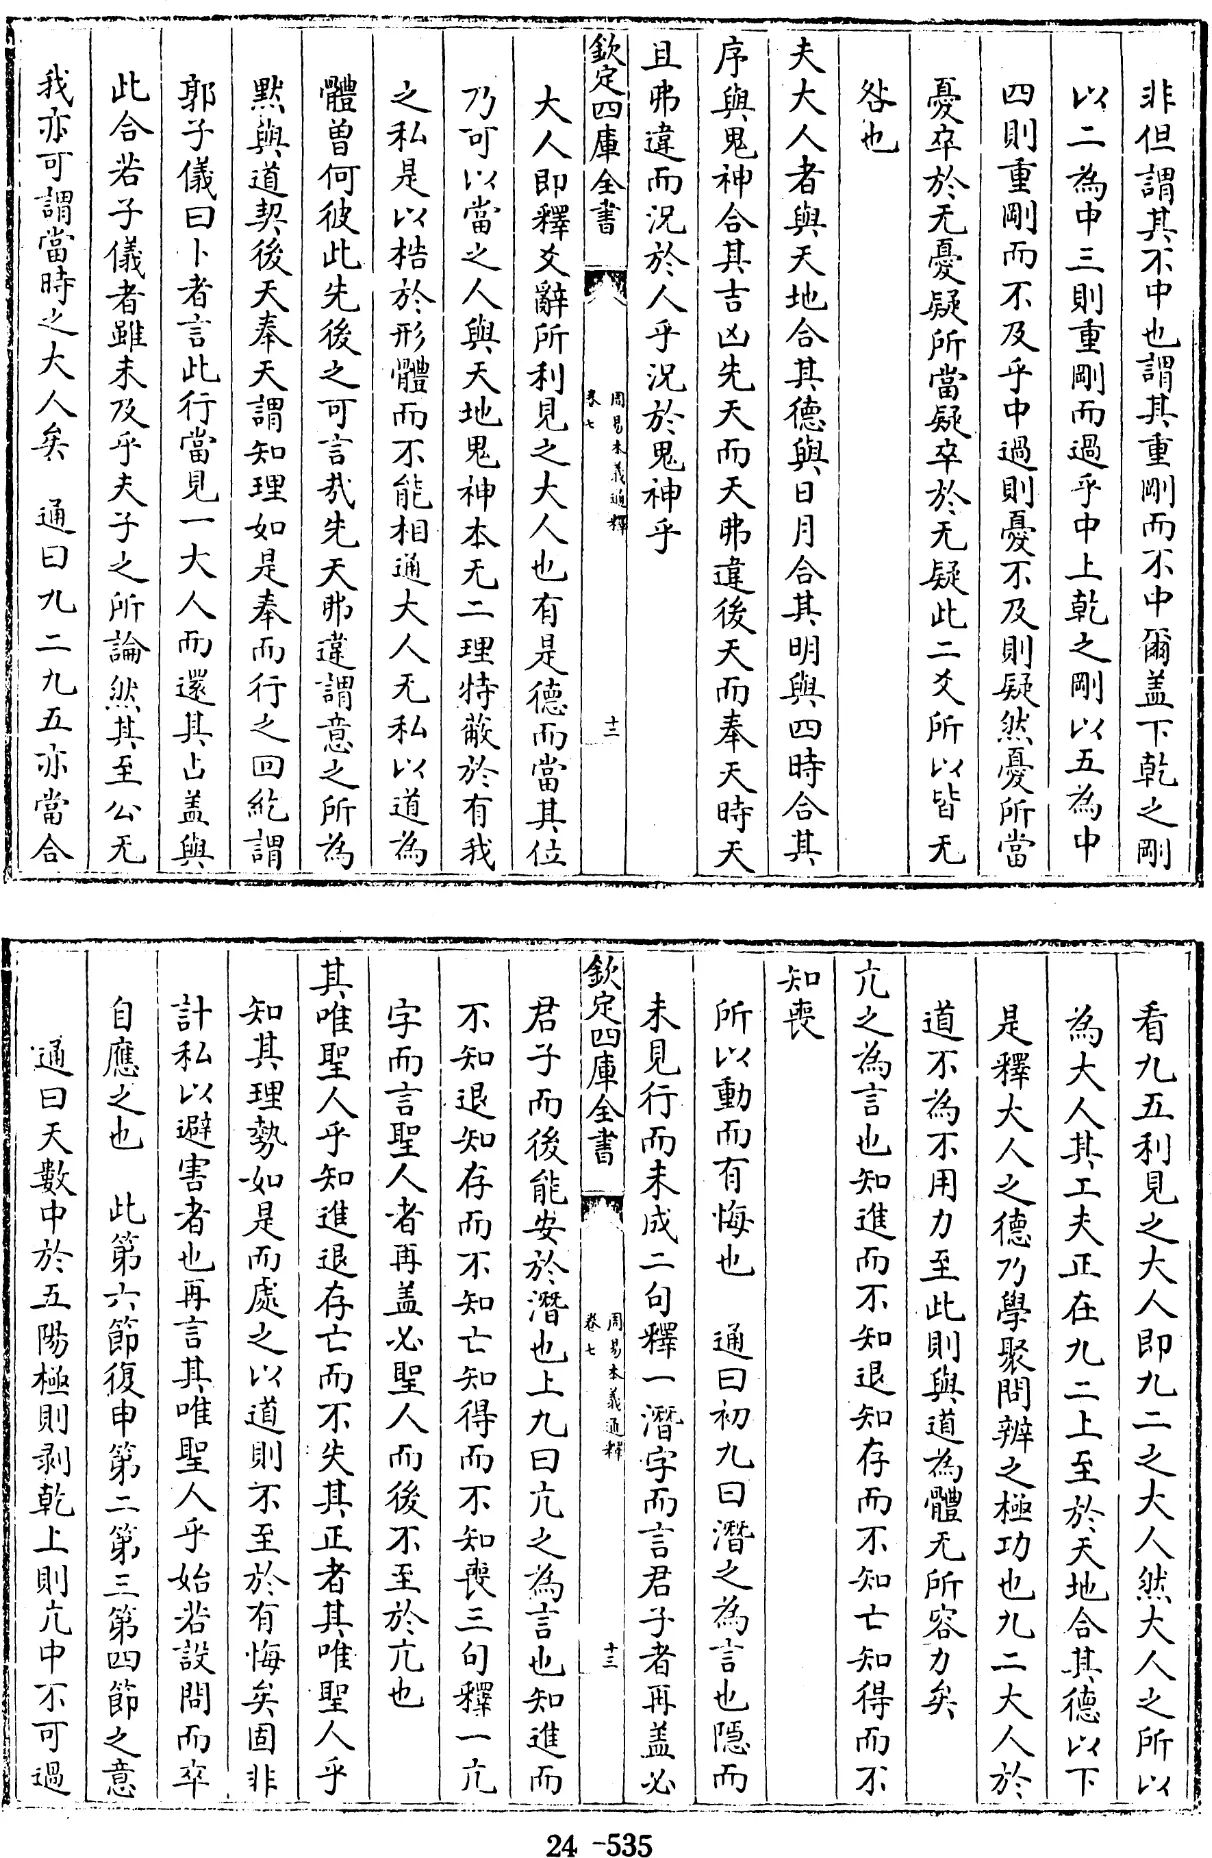 非但謂其不中也謂其重剛而不中爾盖下乾之剛
以二為中三則重剛而過乎中上乾之剛以五為中
四則重剛而不及乎中過則憂不及則疑然憂所當
憂卒於无憂疑所當疑卒於无疑此二爻所以皆无
咎也
夫大人者與天地合其德與日月合其明與四時合其
序與鬼神合其吉凶先天而天弗違後天而奉天時天
且弗違而況於人乎況於鬼神乎
欽定四庫全書
周易本義通釋
卷七
十二
大人即釋爻辭所利見之大人也有是德而當其位
乃可以當之人與天地鬼神本无二理特蔽於有我
之私是以梏於形體而不能相通大人无私以道為
體曽何彼此先後之可言哉先天弗違謂意之所為
黙與道契後天奉天謂知理如是奉而行之回紇謂
郭子儀曰卜者言此行當見一大人而還其占盖與
此合若子儀者雖未及乎夫子之所論然其至公无
我亦可謂當時之大人矣 通曰九二九五亦當合
看九五利見之大人即九二之大人然大人之所以
為大人其工夫正在九二上至於天地合其德以下
是釋大人之德乃學聚問辨之極功也九二大人於
道不為不用力至此則與道為體无所容力矣
亢之為言也知進而不知退知存而不知亡知得而不
知喪
所以動而有悔也 通曰初九曰潛之為言也隱而
未見行而未成二句釋一潛字而言君子者再盖必
欽定四庫全書
周易本義通釋
卷七
十三
君子而後能安於潛也上九曰亢之為言也知進而
不知退知存而不知亡知得而不知喪三句釋一亢
字而言聖人者再盖必聖人而後不至於亢也
其唯聖人乎知進退存亡而不失其正者其唯聖人乎
知其理勢如是而處之以道則不至於有悔矣固非
計私以避害者也再言其唯聖人乎始若設問而卒
自應之也 此第六節復申第二第三第四節之意
通曰天數中於五陽極則剥乾上則亢中不可過
24-535